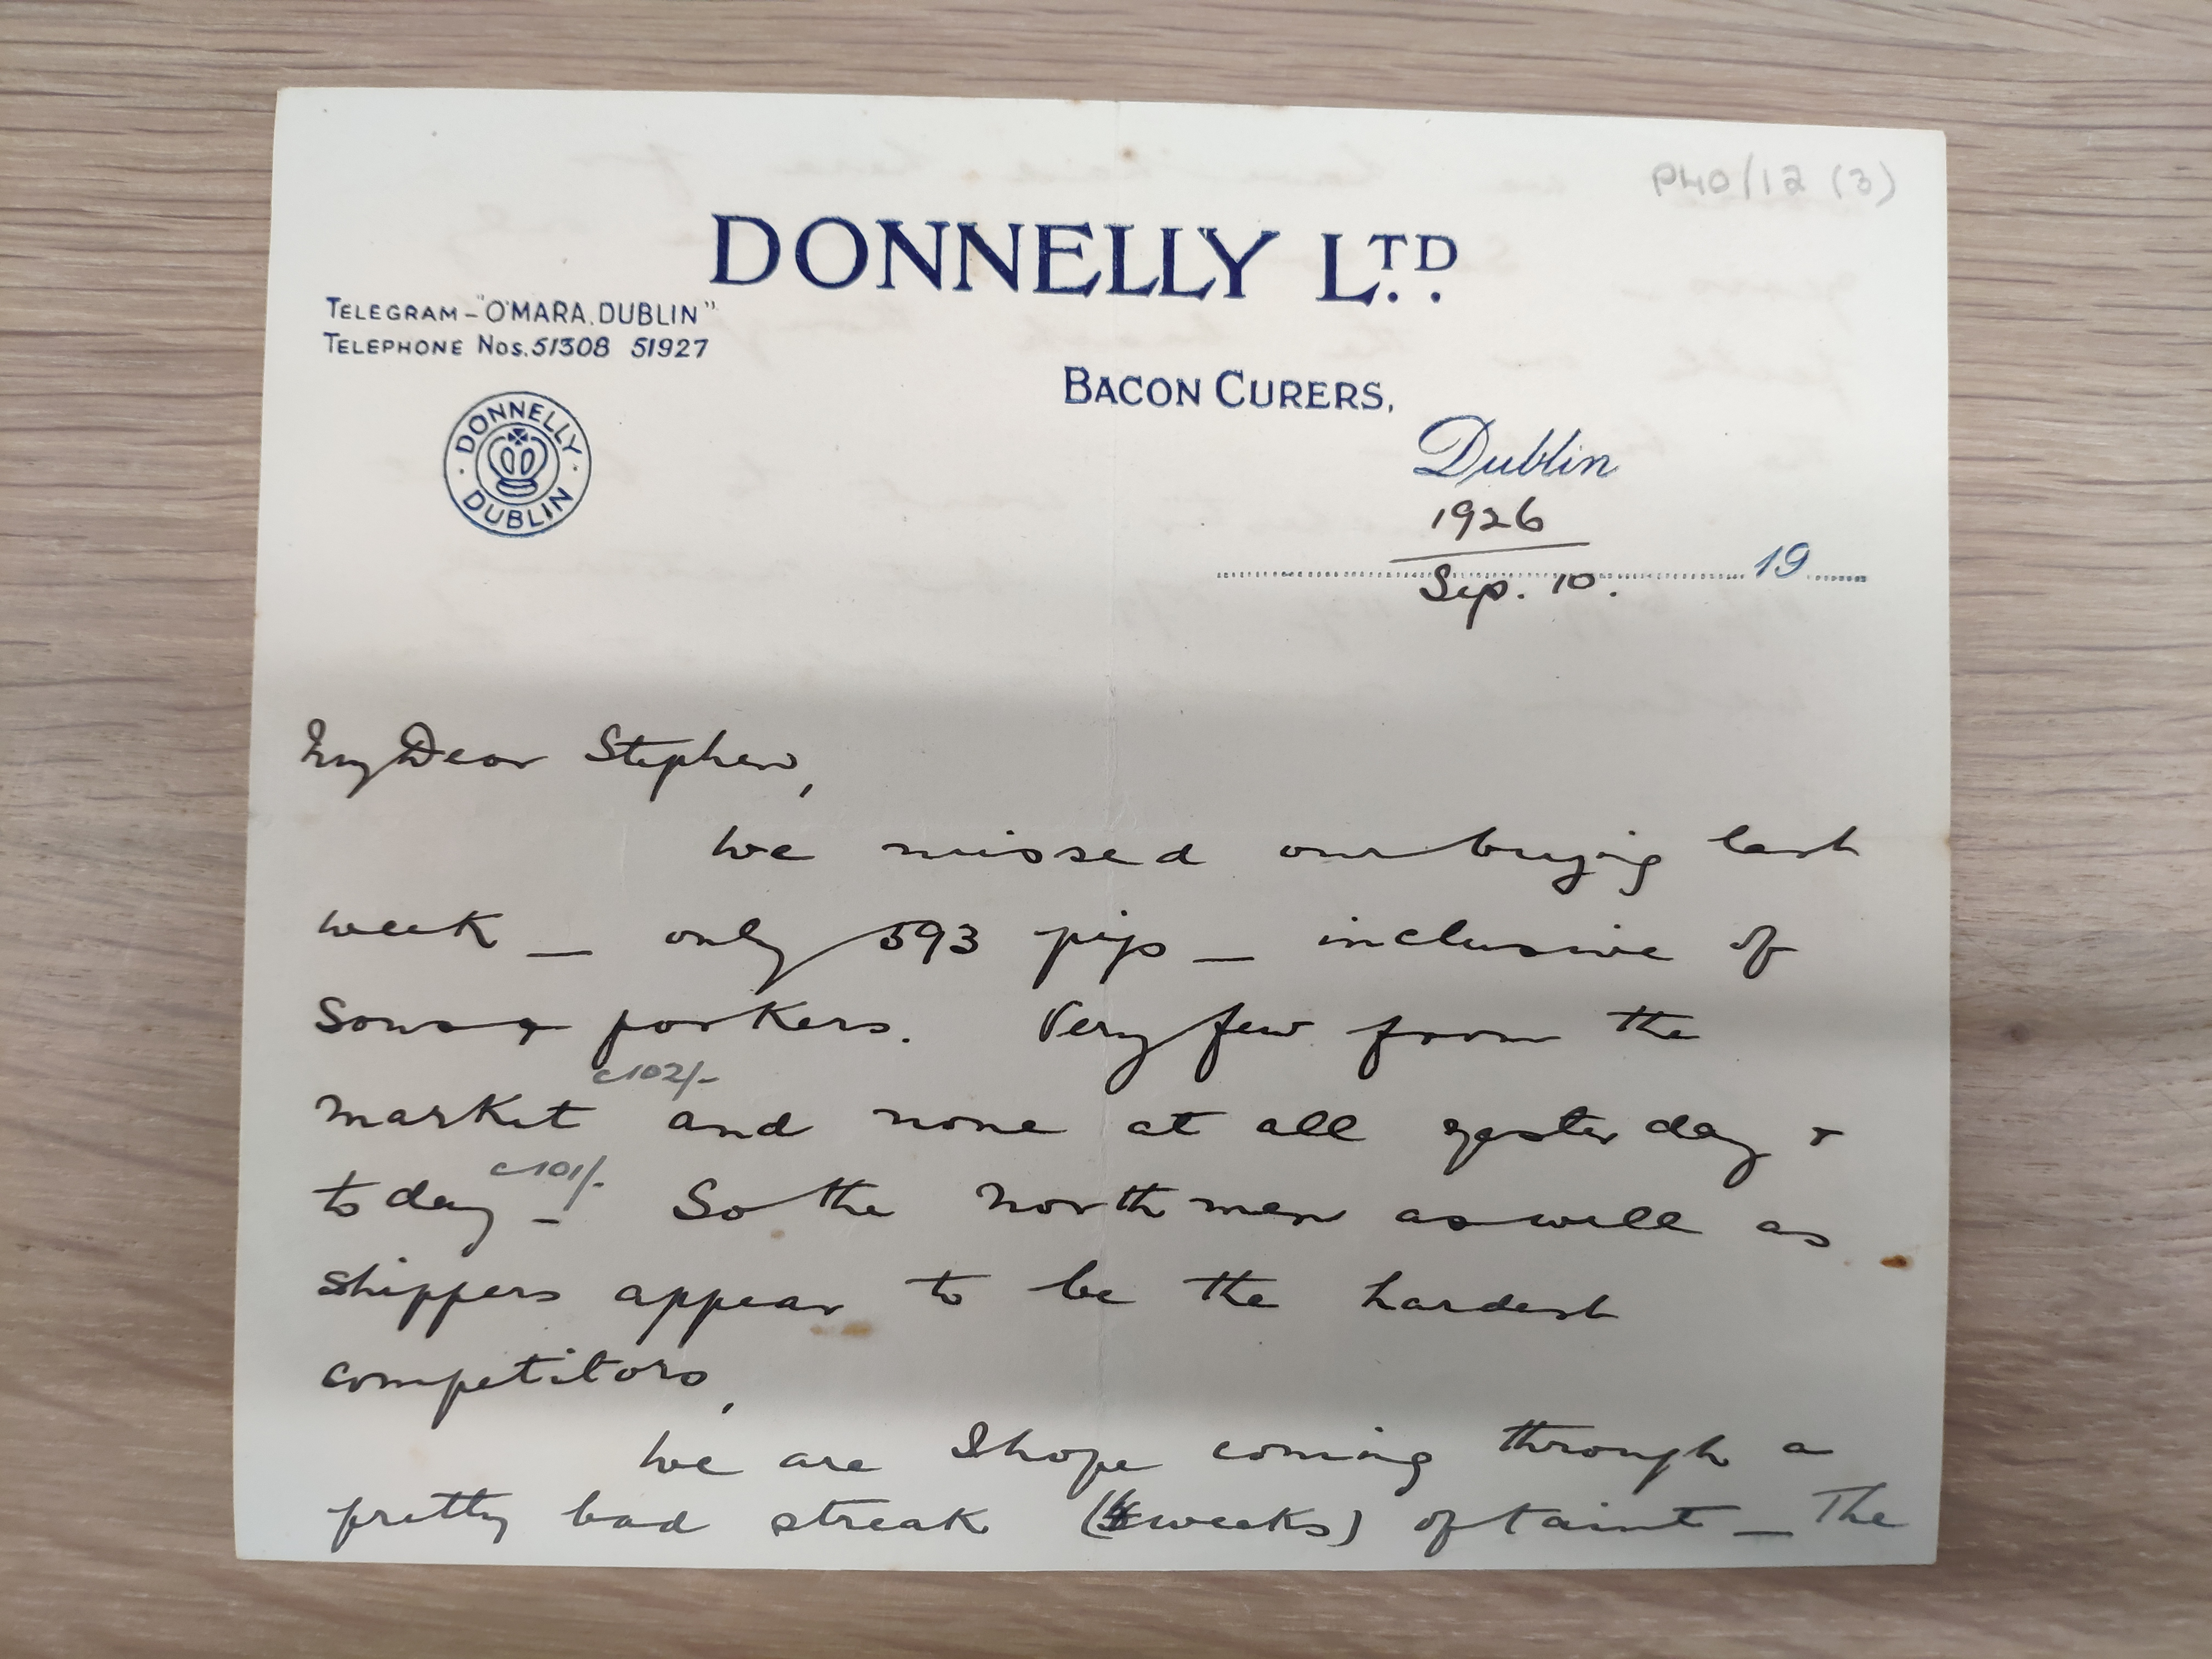 P40/12 (3)
DONNELLY LTD.
TELEGRAM - "O'MARA. DUBLIN"
TELEPHONE Nos. 51308 51927
BACON CURERS,
DONNELLY · DUBLIN ·
Dublin
1926
Sep. 10. 19
My Dear Stephen,
We missed our buying last
week _ only 593 pigs _ inclusive of
Sows & porkers. Very few from the
c102/-
market and none at all yesterday &
c101/-
today _ So the Northmen as well as
shippers appear to be the hardest
competitors,
We are I hope coming through a
pretty bad streak ( weeks) of taint _ The